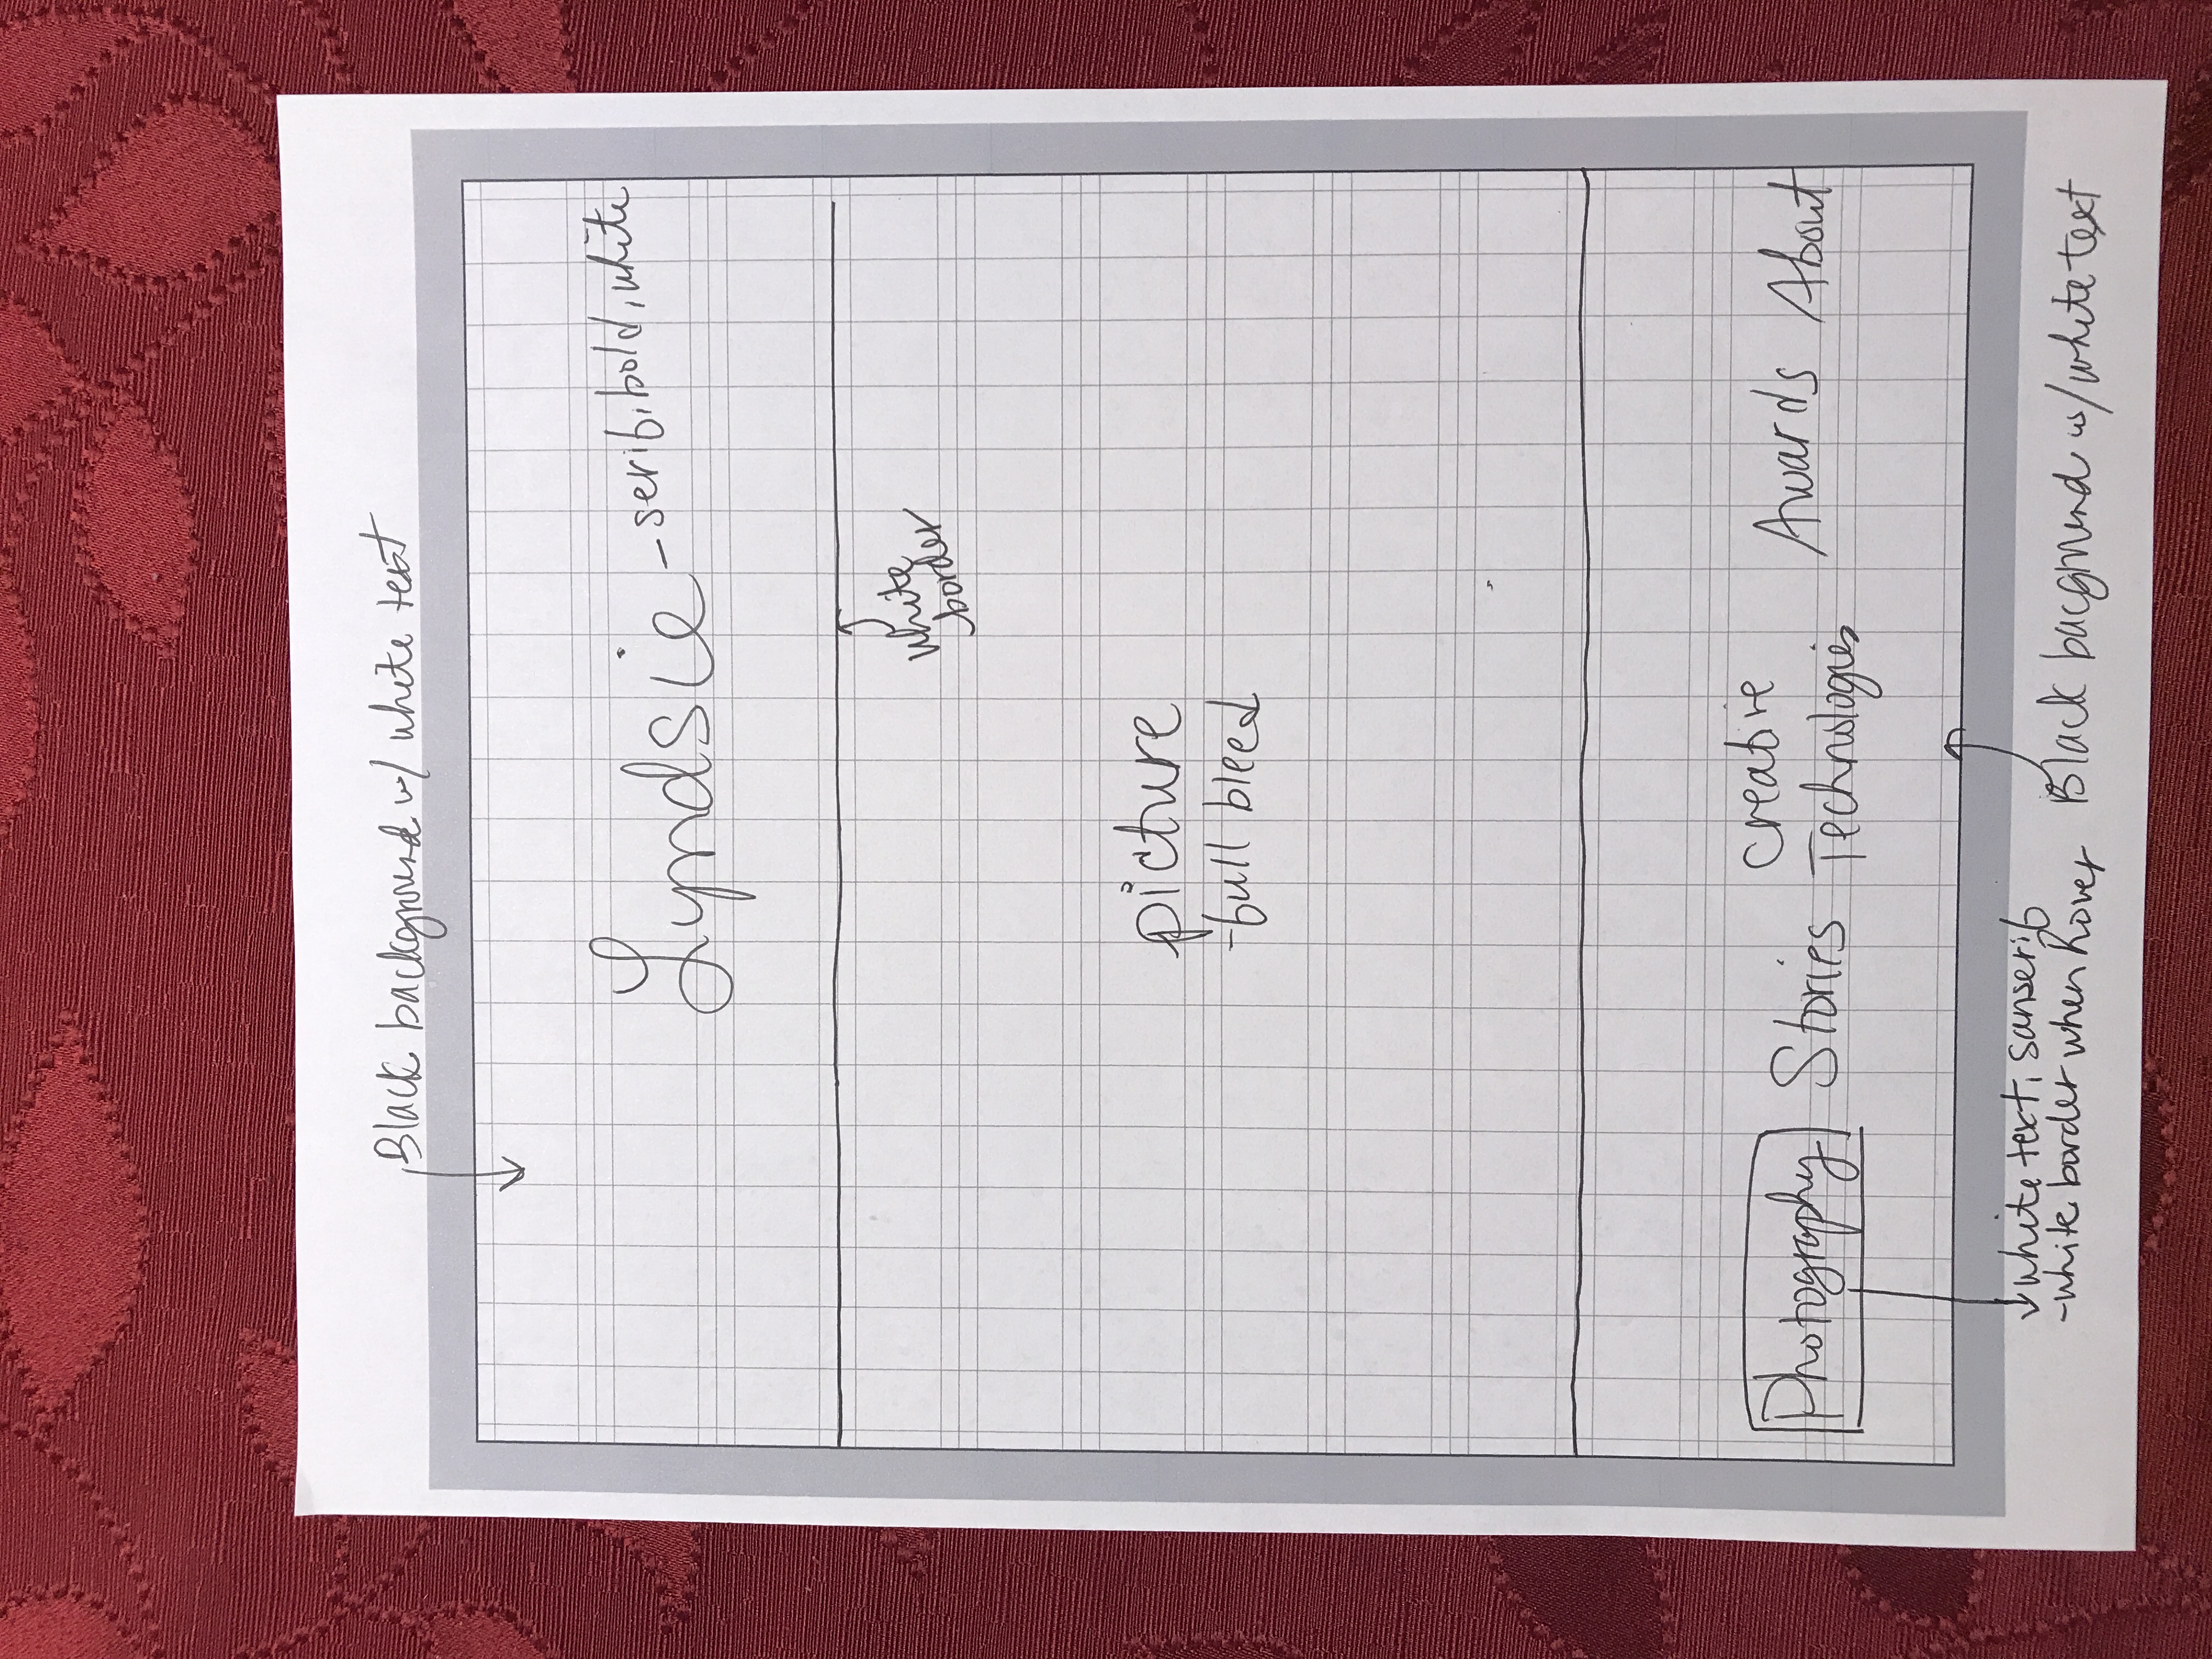 Black background w/ white text
Lyndsie - serif, bold, white
white
border
picture
- full bleed
Photography Stories Creative Technologies Awards About
white text, sanserif
- white border when hover
Black bacground w/ white text